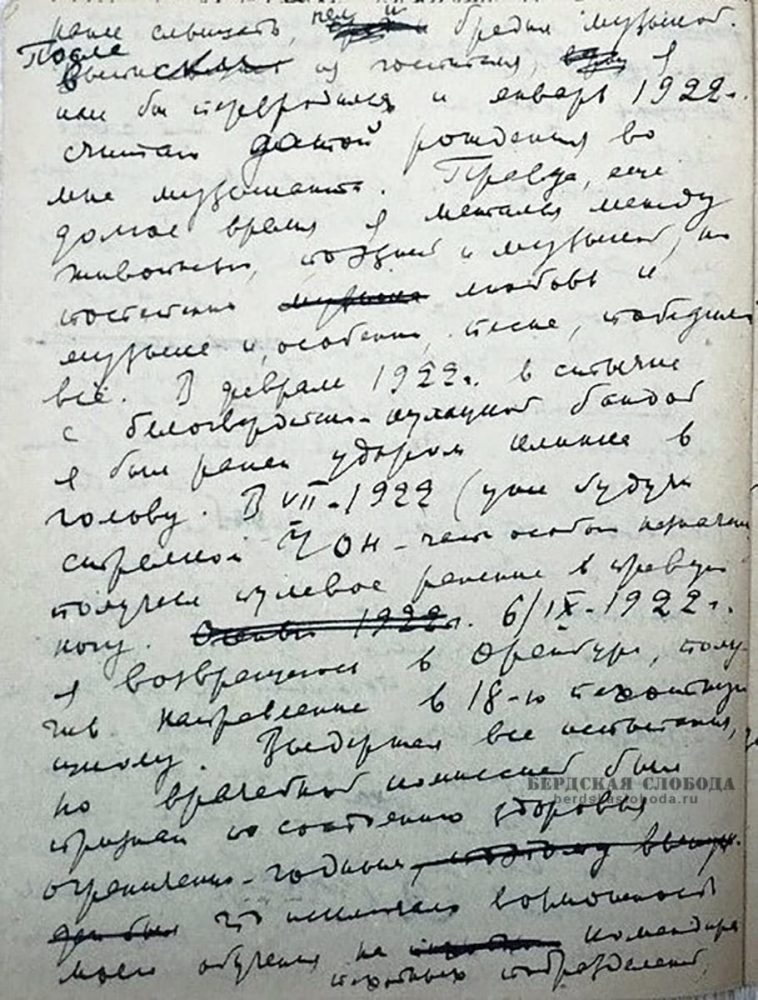 слышать, чем и бредил музыкой.
После
выписки из госпиталя, я
как бы переродился и январь 1922 г.
считаю датой рождения во
мне музыканта. Правда, еще
долгое время я метался между
живописью, поэзией и музыкой, но
постепенно любовь к
музыке и, особенно, песне, победила
всё. В феврале 1922 г. в стычке
с белогвардейско-кулацкой бандой
я был ранен ударом клинка в
голову. В VII-1922 (уже будучи
стрелком ЧОН - часть особого назначен.
получил пулевое ранение в правую
ногу. 1922 г. 6/IX-1922 г.
я возвращаюсь в Оренбург, полу-
чив направление в 18-ю пехотную
школу. Выдержал все испытания,
но врачебной комиссией был
БЕРДСКАЯ СЛОБОДА
berdskasloboda.ru
признан по состоянию здоровья
ограниченно-годным, поэтому
что исключало возможность
моего обучения на командира
пехотных подразделений,